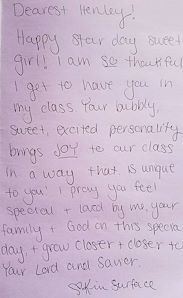 Dearest Henley!
Happy star day sweet
girl! I am so thankful
I get to have you in
my class. Your bubbly,
sweet, excited personality
brings JOY to our class
in a way that is unique
to you! I pray you feel
special + loved by me, your
family + God on this special
day + grow closer + closer to
your Lord and Savior.
Surface